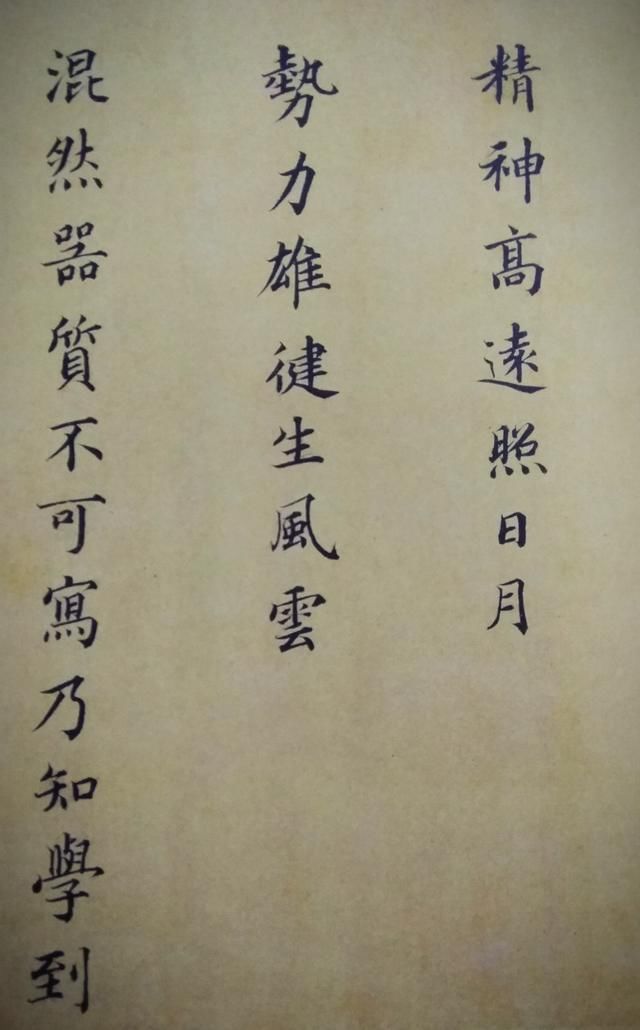 精神高遠照日月
勢力雄健生風雲
混然器質不可寫乃知學到